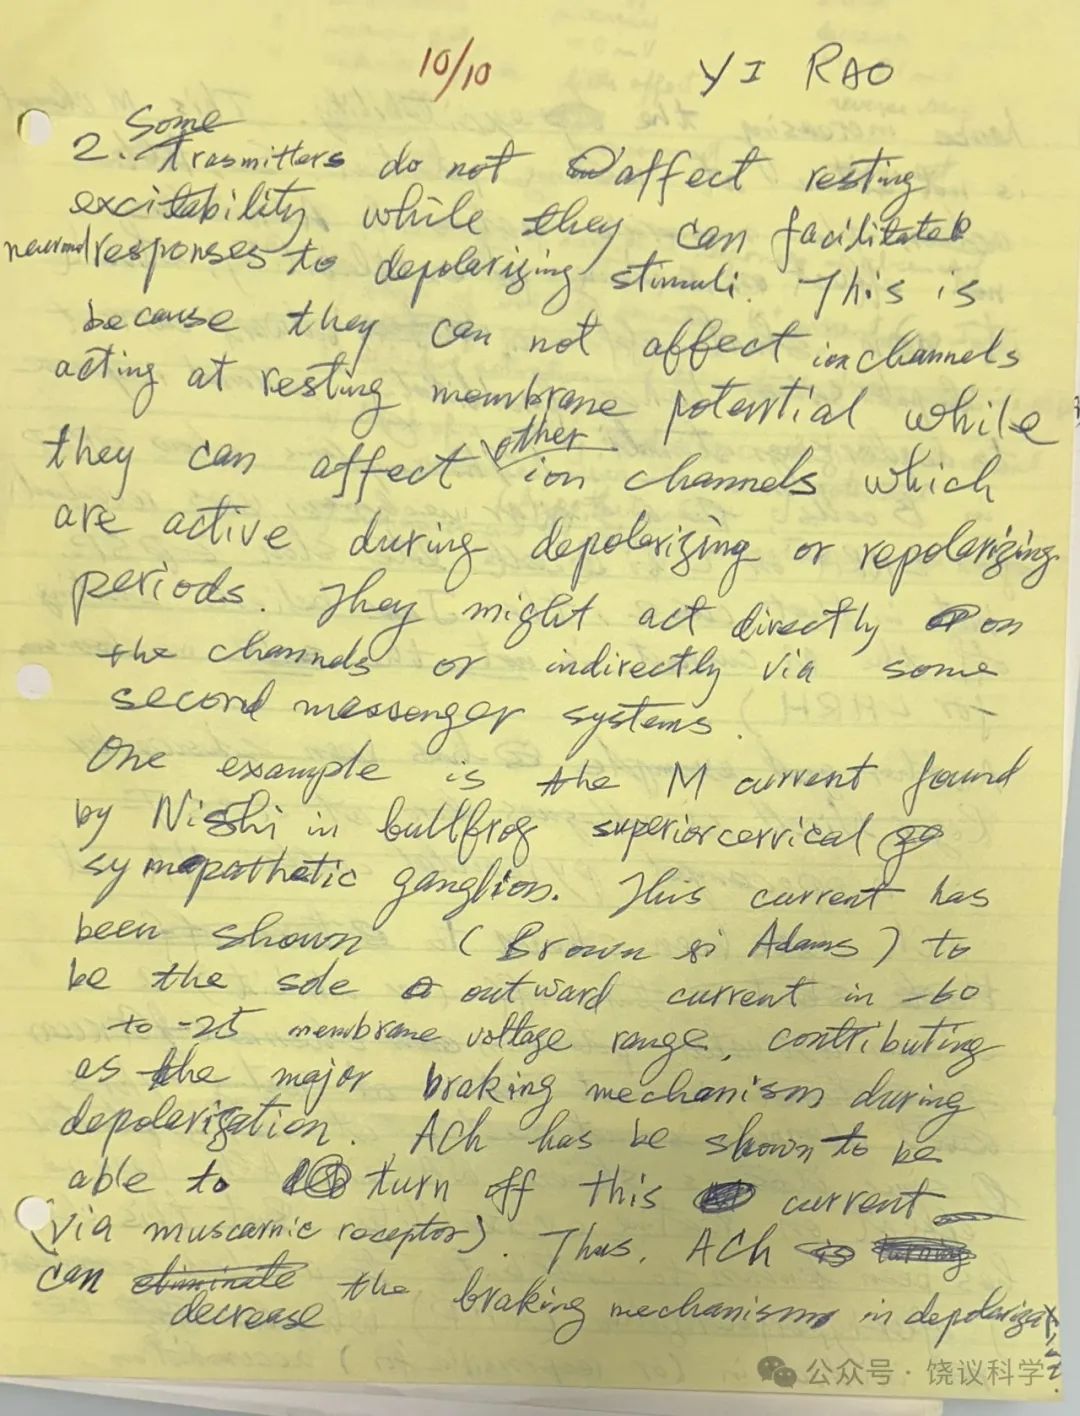 10/10 YI RAO
Some
2. Trasmitters do not affect resting
excitability while they can facilitate
neuronal responses to depolarizing stimuli. This is
because they can not affect ion channels
acting at resting membrane potential while
they can affect other ion channels which
are active during depolarizing or repolarizing
periods. They might act directly on
the channels or indirectly via some
second messenger systems.
One example is the M current found
by Nishi in bullfrog superior cervical
symapathetic ganglion. This current has
been shown (Brown & Adams) to
be the sole outward current in -60
to -25 membrane voltage range, contributing
as the major braking mechanism during
depolarization. ACh has be shown to be
able to turn off this current
(via muscarnic receptor). Thus, ACh
can eliminate the braking mechanism in depolarization.
decrease
公众号·饶议科学